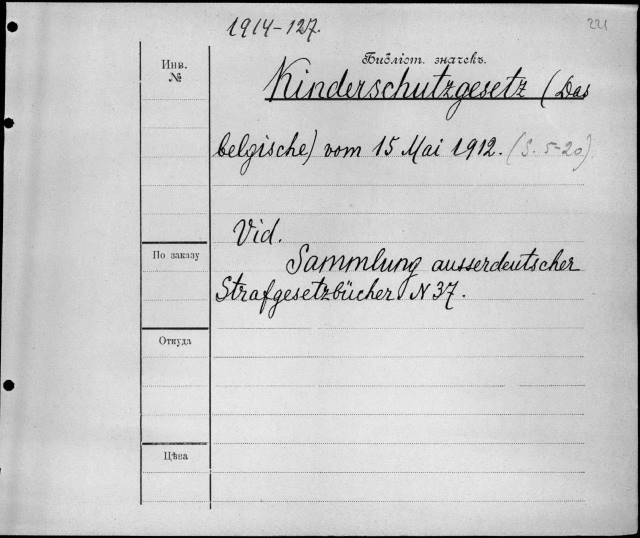 1914-127.
221
Библіот. значекъ.
Инв.
№
Kinderschutzgesetz (Das
belgische) vom 15 Mai 1912. (S. 5-20)
Vid.
По заказу
Sammlung ausserdeutscher
Strafgesetzbücher N 37.
Откуда
Цѣна